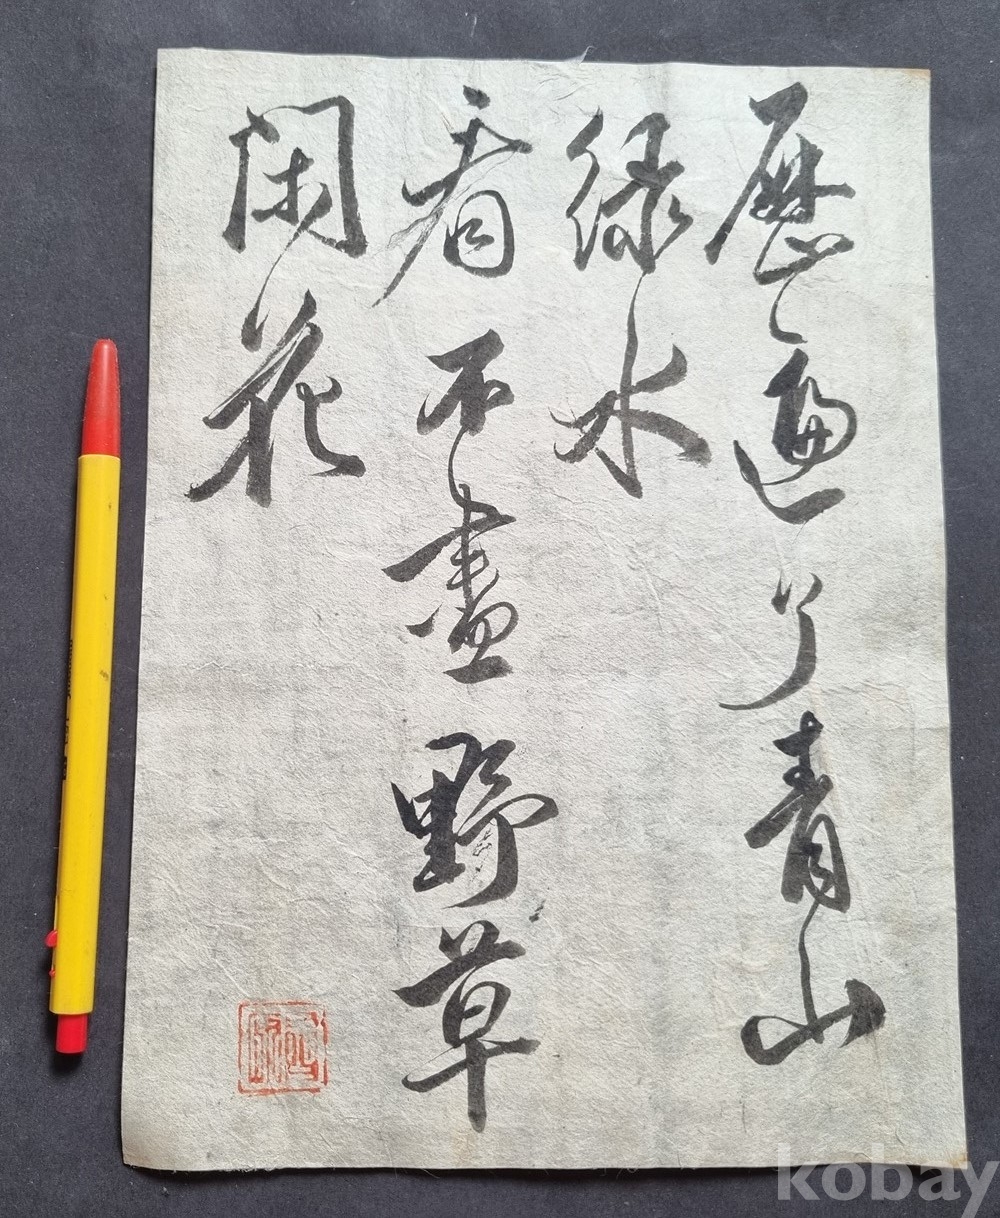 歷遍了青山
綠水
看不盡野草
閑花
kobay